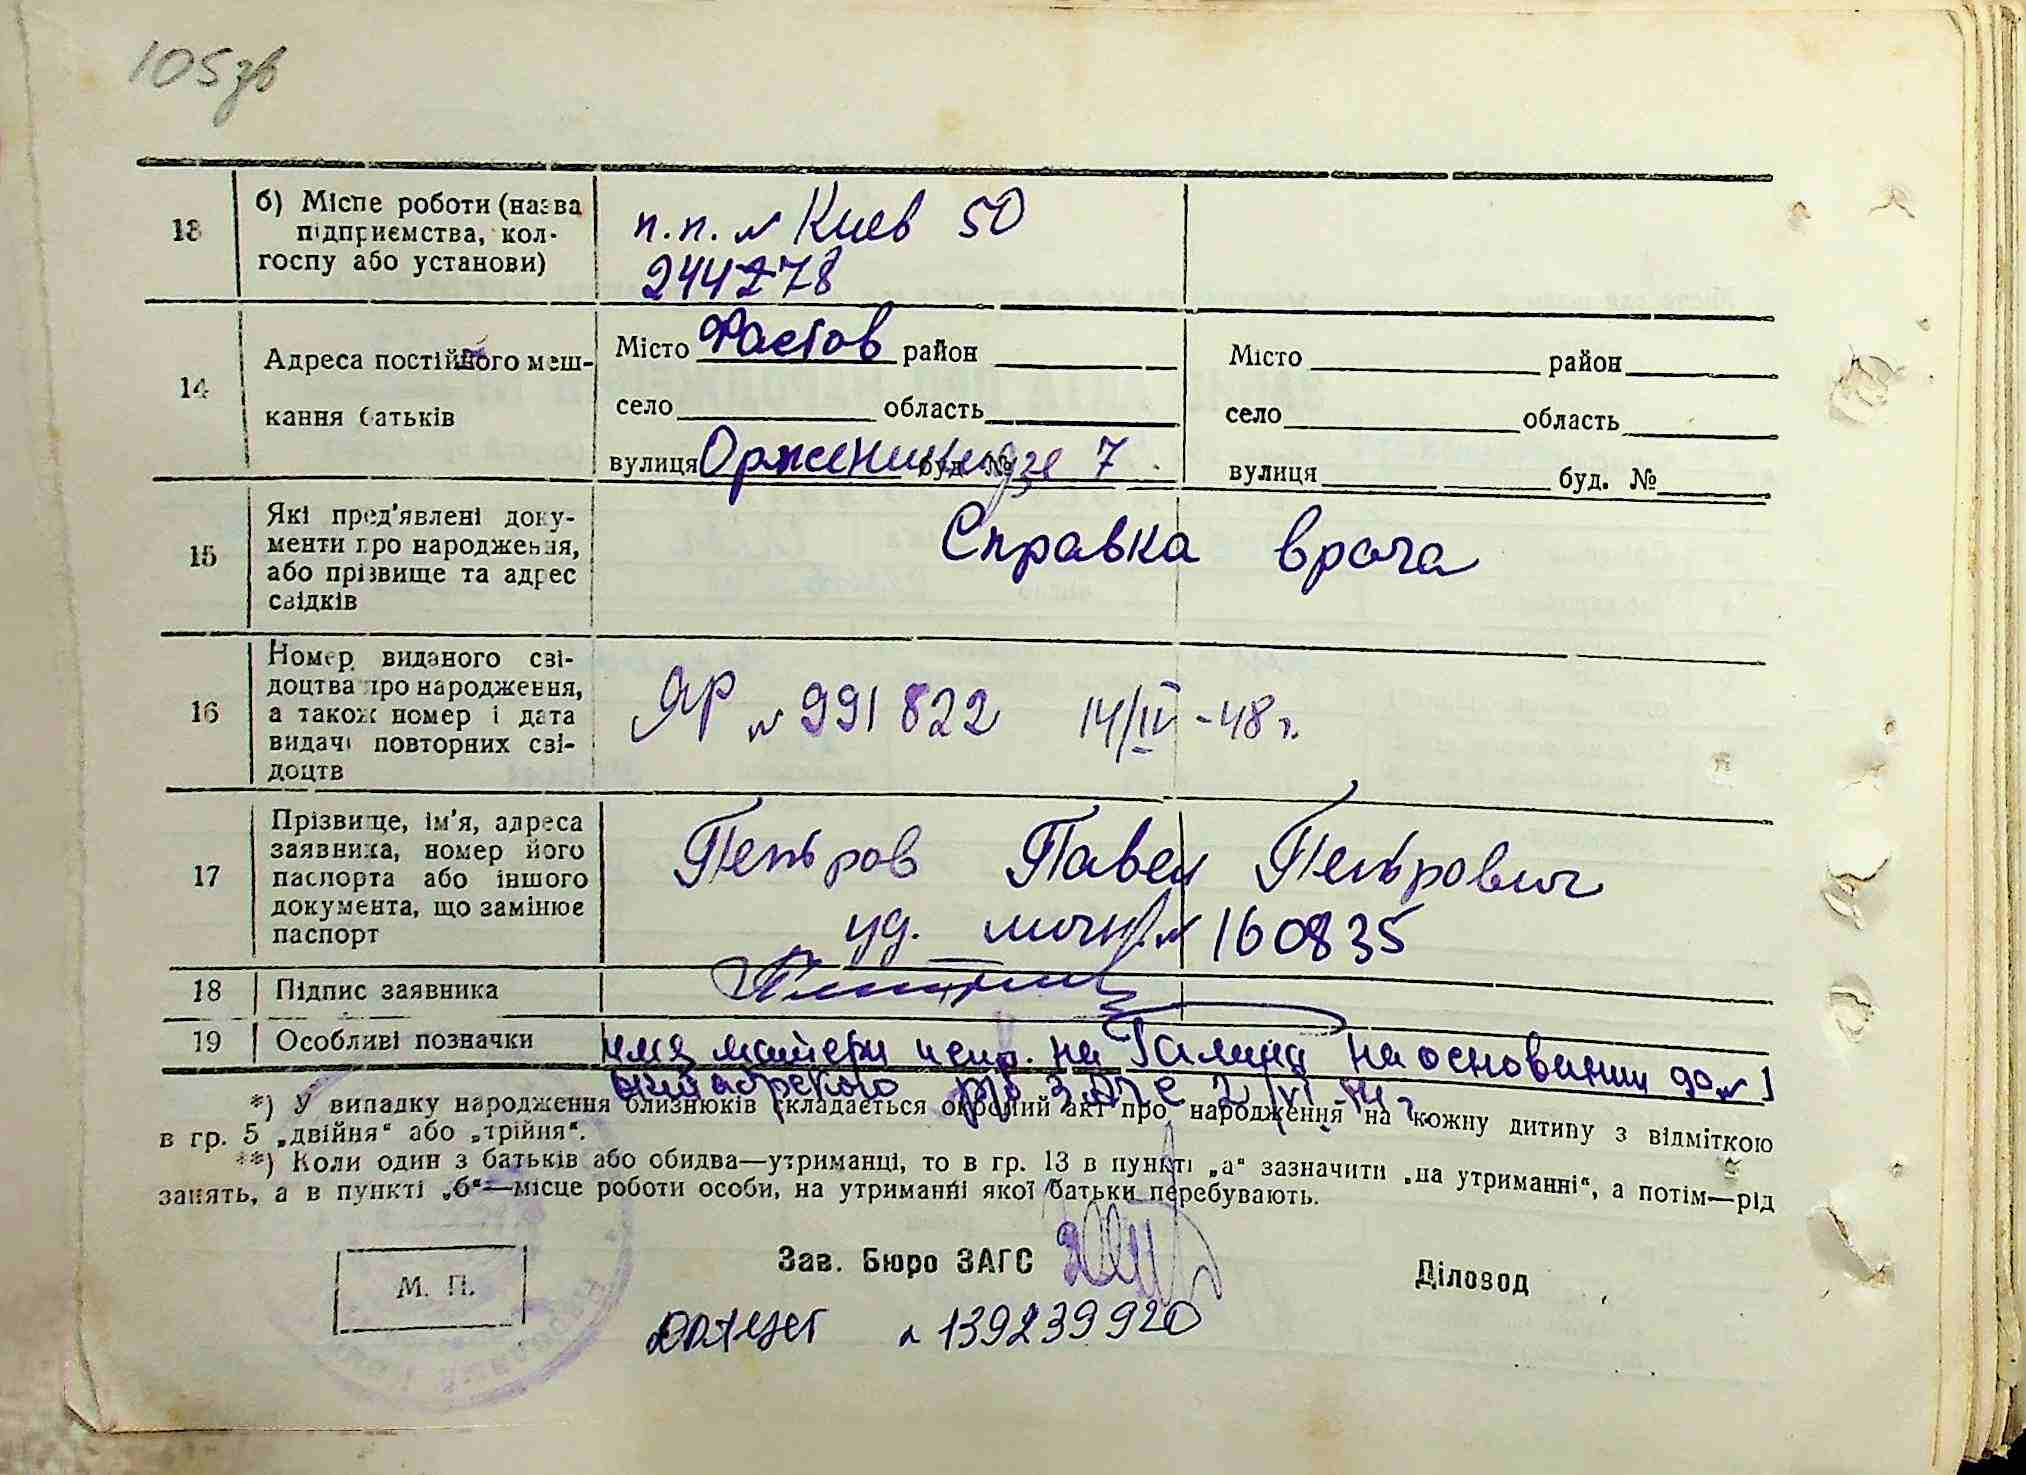 105зв
13
б) Місце роботи (назва
підприємства, кол-
госпу або установи)
п.п. № Киев 50
244278
14
Адреса постійного меш-
кання батьків
Місто Фастов район
село область
вулиця Орженикидзе буд. № 7
Місто район
село область
вулиця буд. №
15
Які пред'явлені доку-
менти про народження,
або прізвище та адрес
свідків
Справка врача
16
Номер виданого сві-
доцтва про народження,
а також номер і дата
видачі повторних сві-
доцтв
ЯР № 991822 14/IV-48 г.
17
Прізвище, ім'я, адреса
заявника, номер його
паспорта або іншого
документа, що замінює
паспорт
Петров Павел Петрович
уд. личн. № 160835
18
Підпис заявника
19
Особливі позначки
имя матери испр. на Галина на основании
*) У випадку народження близнюків складається окремий акт про народження на кожну дитину з відміткою
в гр. 5 „двійня“ або „трійня“.
**) Коли один з батьків або обидва—утриманці, то в гр. 13 в пункті „а“ зазначити „на утриманні“, а потім—рід
занять, а в пункті „б“—місце роботи особи, на утриманні якої батьки перебувають.
М. П.
Зав. Бюро ЗАГС
Діловод
№ 139239920